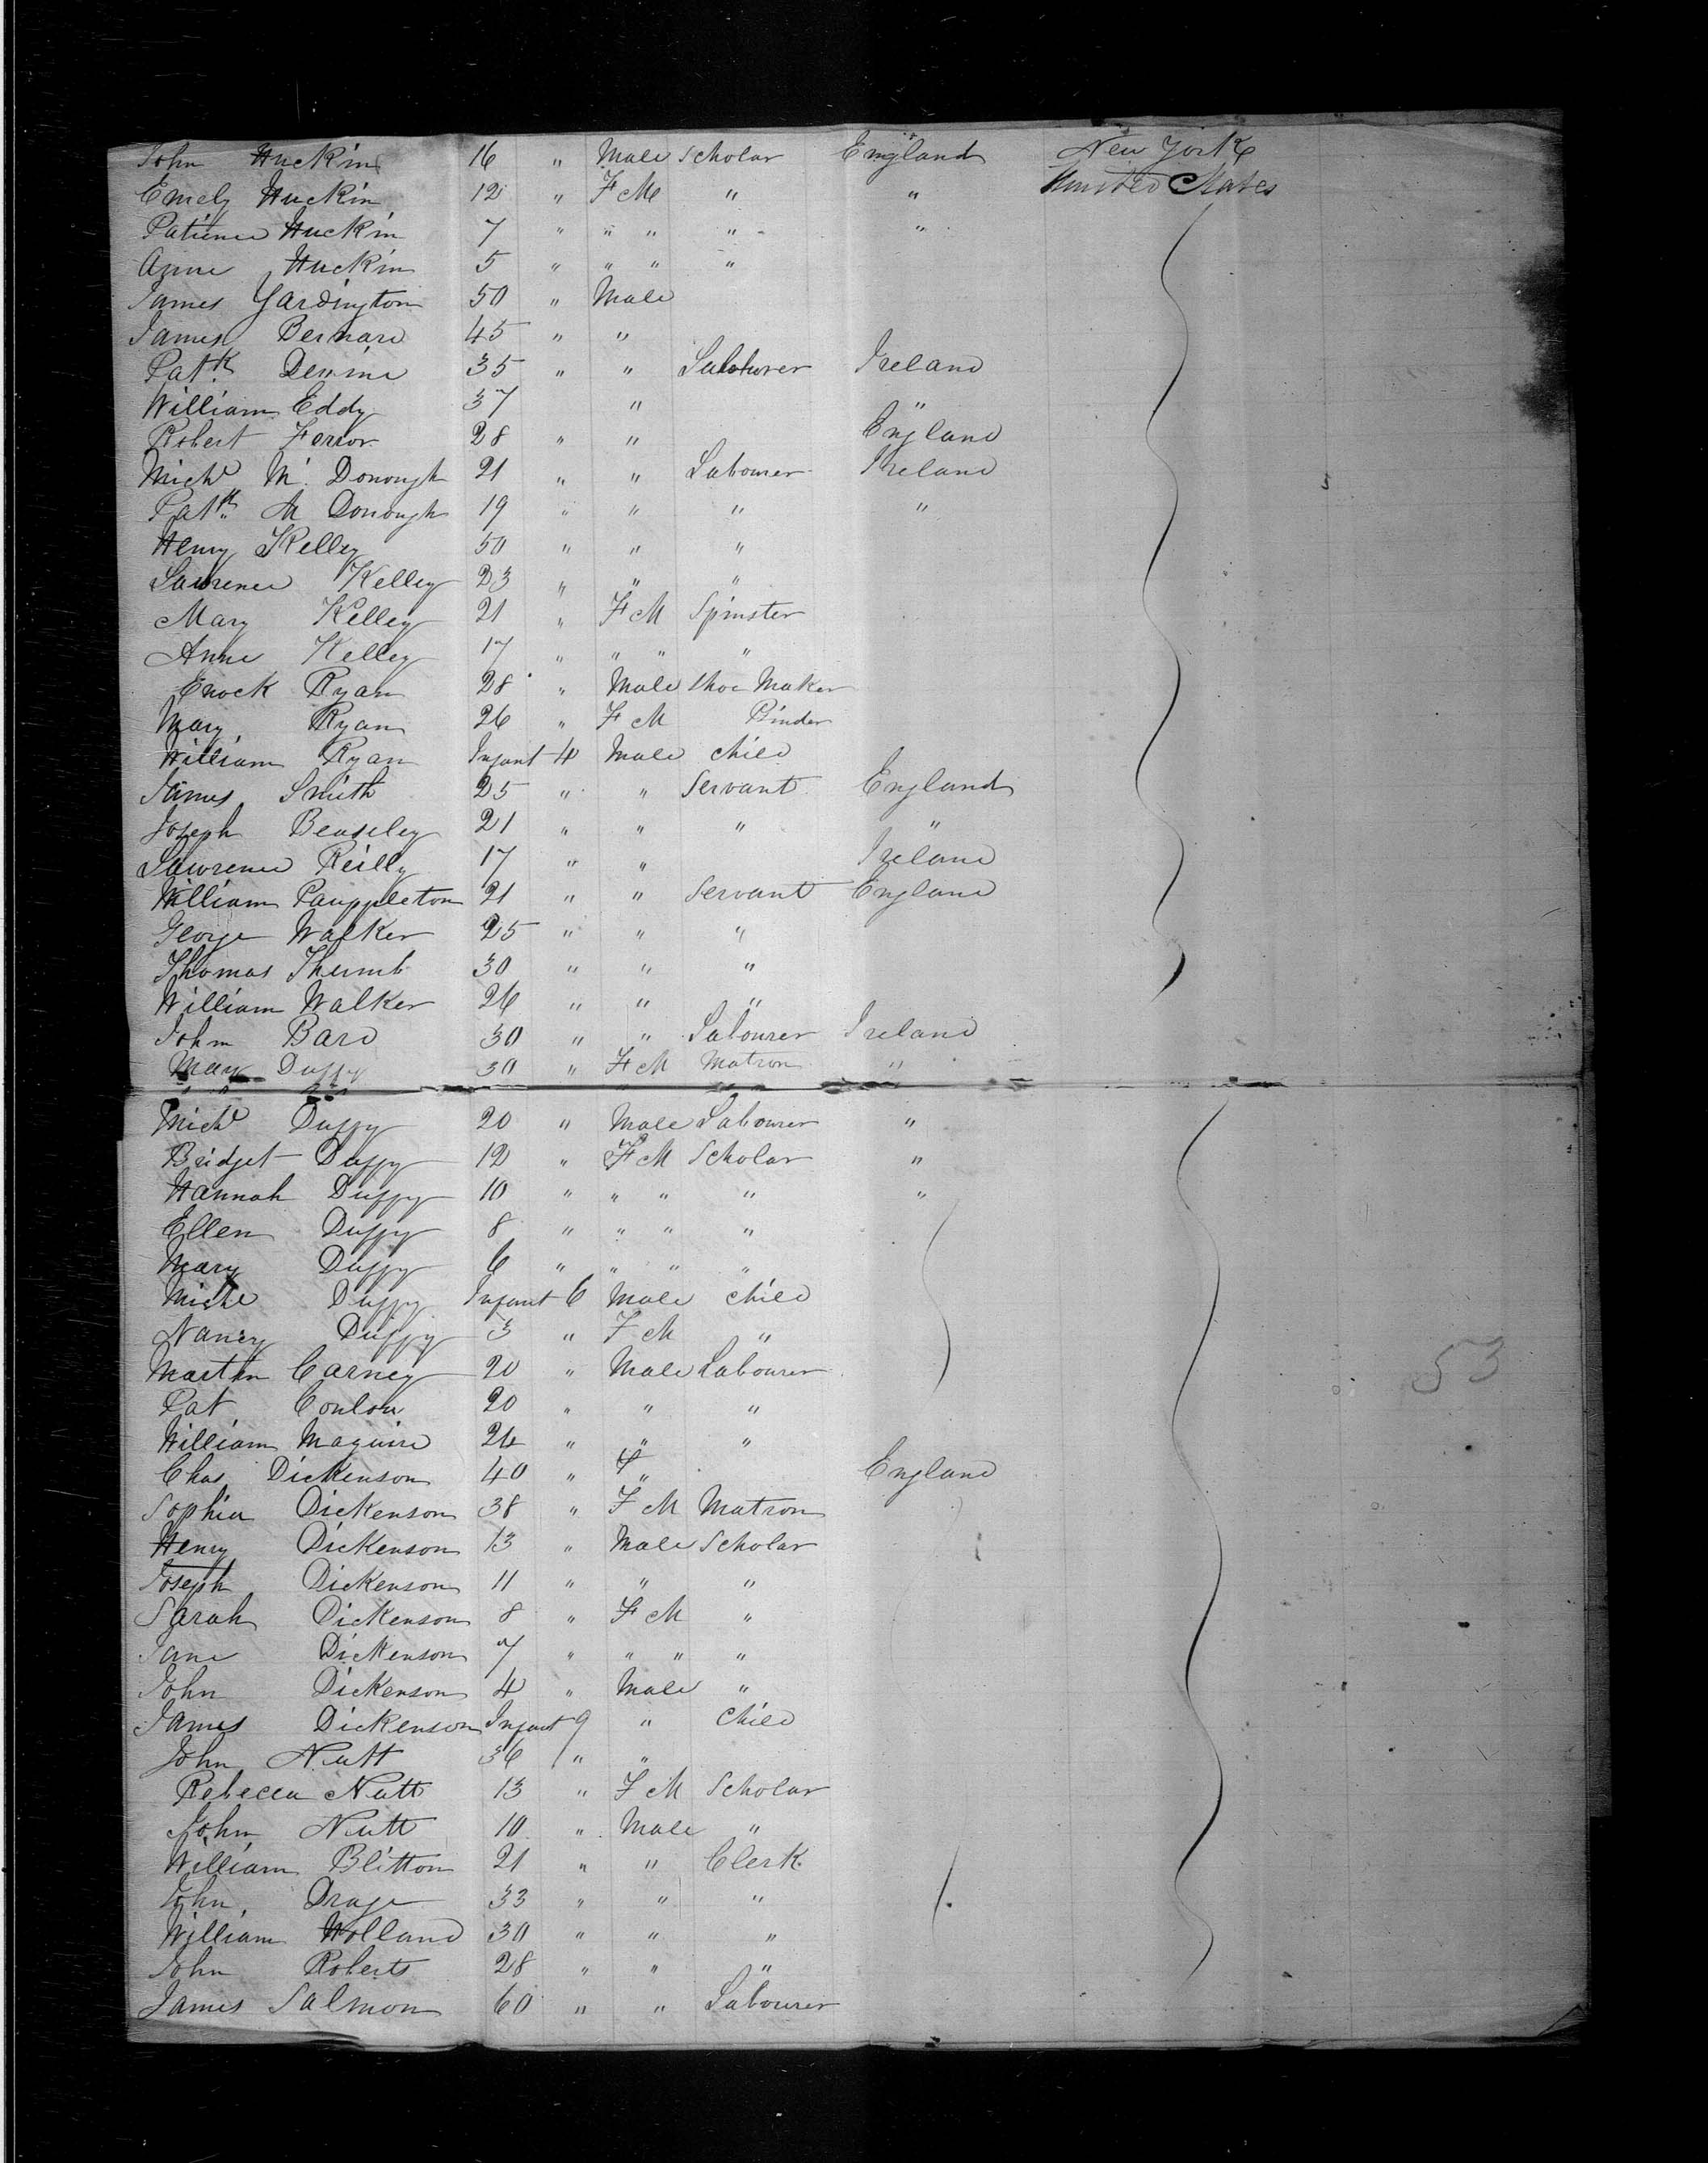 John Huckin 16 " Male Scholar England New York
Emely Huckin 12 " F M " " United States
Patience Huckin 7 " " " " "
Anne Huckin 5 " " " "
James Yardington 50 " Male
James Bernard 45 " "
Patk Devine 35 " " Labourer Ireland
William Eddy 37 " "
Robert Ferror 28 " " England
Michl Mc Donough 21 " " Labourer Ireland
Patk Mc Donough 19 " " " "
Henry Kelley 50 " " "
Lawrence Kelley 23 " " "
Mary Kelley 21 " F M Spinster
Anne Kelley 17 " " " "
Enock Ryan 28 " Male Shoe Maker
Mary Ryan 26 " F M Binder
William Ryan Infant 4 Male Child
James Smith 25 " " Servant England
Joseph Beaseley 21 " " " "
Lawrence Reilly 17 " " Ireland
William Pauppleton 21 " " Servant England
George Walker 25 " " "
Thomas Thumb 30 " " "
William Walker 26 " " "
John Bard 30 " " Labourer Ireland
Mary Duffy 30 " F M Matron "
Michl Duffy 20 " Male Labourer "
Bridget Duffy 12 " F M Scholar "
Hannah Duffy 10 " " " " "
Ellen Duffy 8 " " " "
Mary Duffy 6 " " " "
Michl Duffy Infant 6 Male Child
Nancy Duffy 3 " F M "
Martin Carney 20 " Male Labourer 53
Pat Conlon 20 " " "
William Maguire 24 " " "
Chas Dickenson 40 " " England
Sophia Dickenson 38 " F M Matron
Henry Dickenson 13 " Male Scholar
Joseph Dickenson 11 " " "
Sarah Dickenson 8 " F M "
Jane Dickenson 7 " " " "
John Dickenson 4 " Male "
James Dickenson Infant 9 " Child
John Nutt 36 " "
Rebecca Nutt 13 " F M Scholar
John Nutt 10 " Male "
William Blitton 21 " " Clerk
John Drage 33 " " "
William Holland 30 " " "
John Roberts 28 " " "
James Salmon 60 " " Labourer